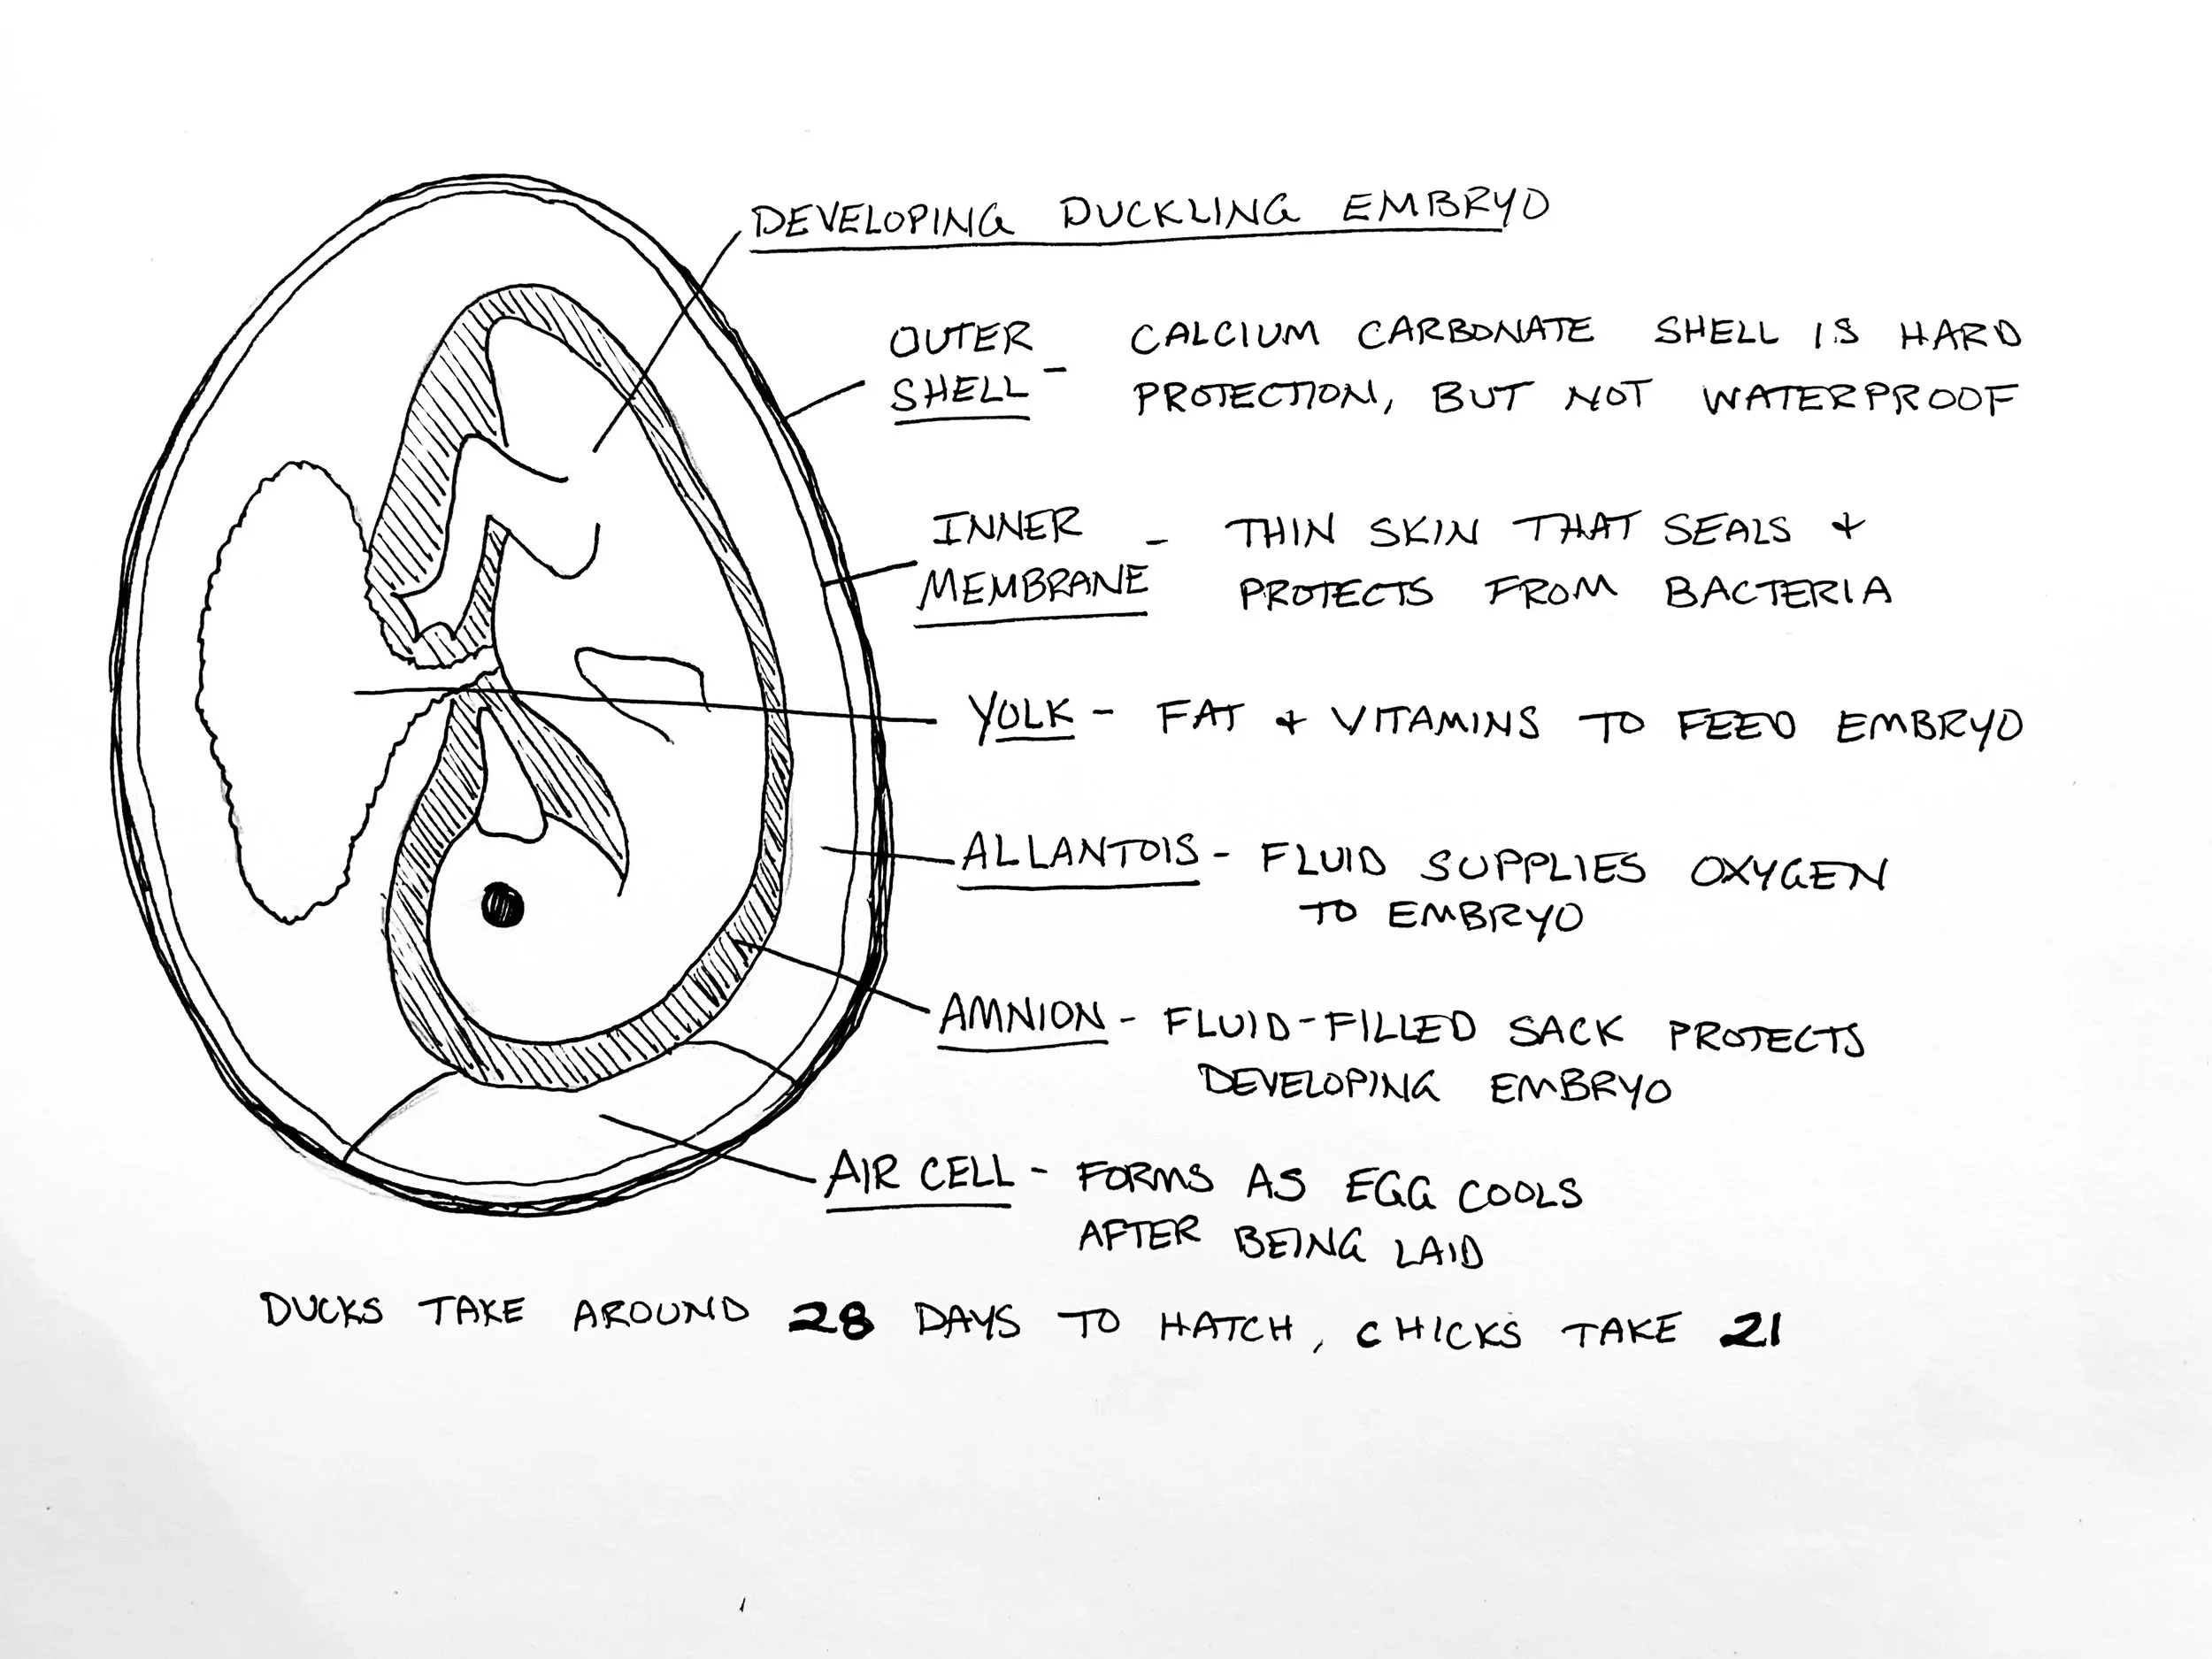 DEVELOPING DUCKLING EMBRYO
OUTER SHELL - CALCIUM CARBONATE SHELL IS HARD
PROTECTION, BUT NOT WATERPROOF
INNER MEMBRANE - THIN SKIN THAT SEALS &
PROTECTS FROM BACTERIA
YOLK - FAT & VITAMINS TO FEED EMBRYO
ALLANTOIS - FLUID SUPPLIES OXYGEN
TO EMBRYO
AMNION - FLUID-FILLED SACK PROTECTS
DEVELOPING EMBRYO
AIR CELL - FORMS AS EGG COOLS
AFTER BEING LAID
DUCKS TAKE AROUND 28 DAYS TO HATCH, CHICKS TAKE 21